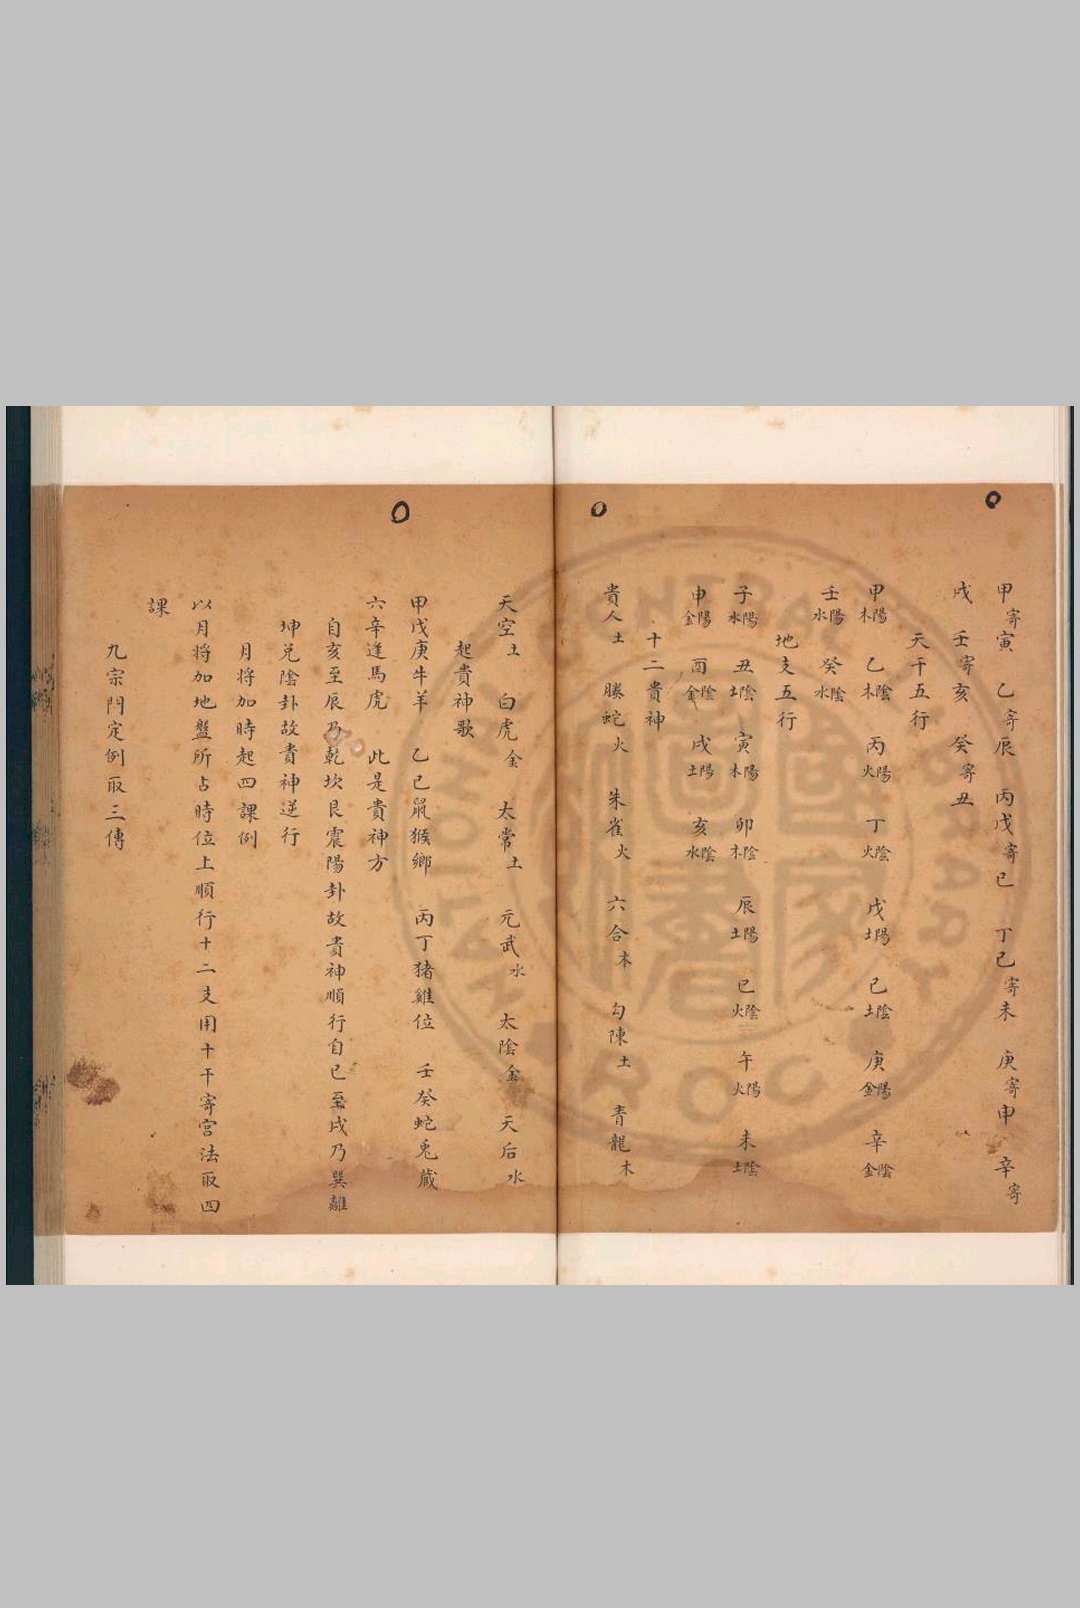 甲寄寅 乙寄辰 丙戊寄巳 丁己寄未 庚寄申 辛寄
戌 壬寄亥 癸寄丑
天干五行
甲陽木 乙陰木 丙陽火 丁陰火 戊陽土 己陰土 庚陽金 辛陰金
壬陽水 癸陰水
地支五行
子陽水 丑陰土 寅陽木 卯陰木 辰陽土 巳陰火 午陽火 未陰土
申陽金 酉陰金 戌陽土 亥陰水
十二貴神
貴人土 騰蛇火 朱雀火 六合木 勾陳土 青龍木
天空土 白虎金 太常土 元武水 太陰金 天后水
起貴神歌
甲戊庚牛羊 乙己鼠猴鄉 丙丁猪雞位 壬癸蛇兎藏
六辛逢馬虎 此是貴神方
自亥至辰乃乾坎艮震陽卦故貴神順行自巳至戌乃巽離
坤兌陰卦故貴神逆行
月將加時起四課例
以月將加地盤所占時位上順行十二支用十干寄宮法取四
課
九宗門定例取三傳